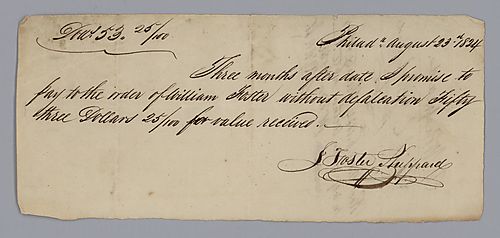 Dolls 53. 25/100
Philada. August 23rd. 1824
Three months after date, I promise to
pay to the order of William Foster without defalcation Fifty
three Dollars 25/100 for value received.
J Foster Sheppard